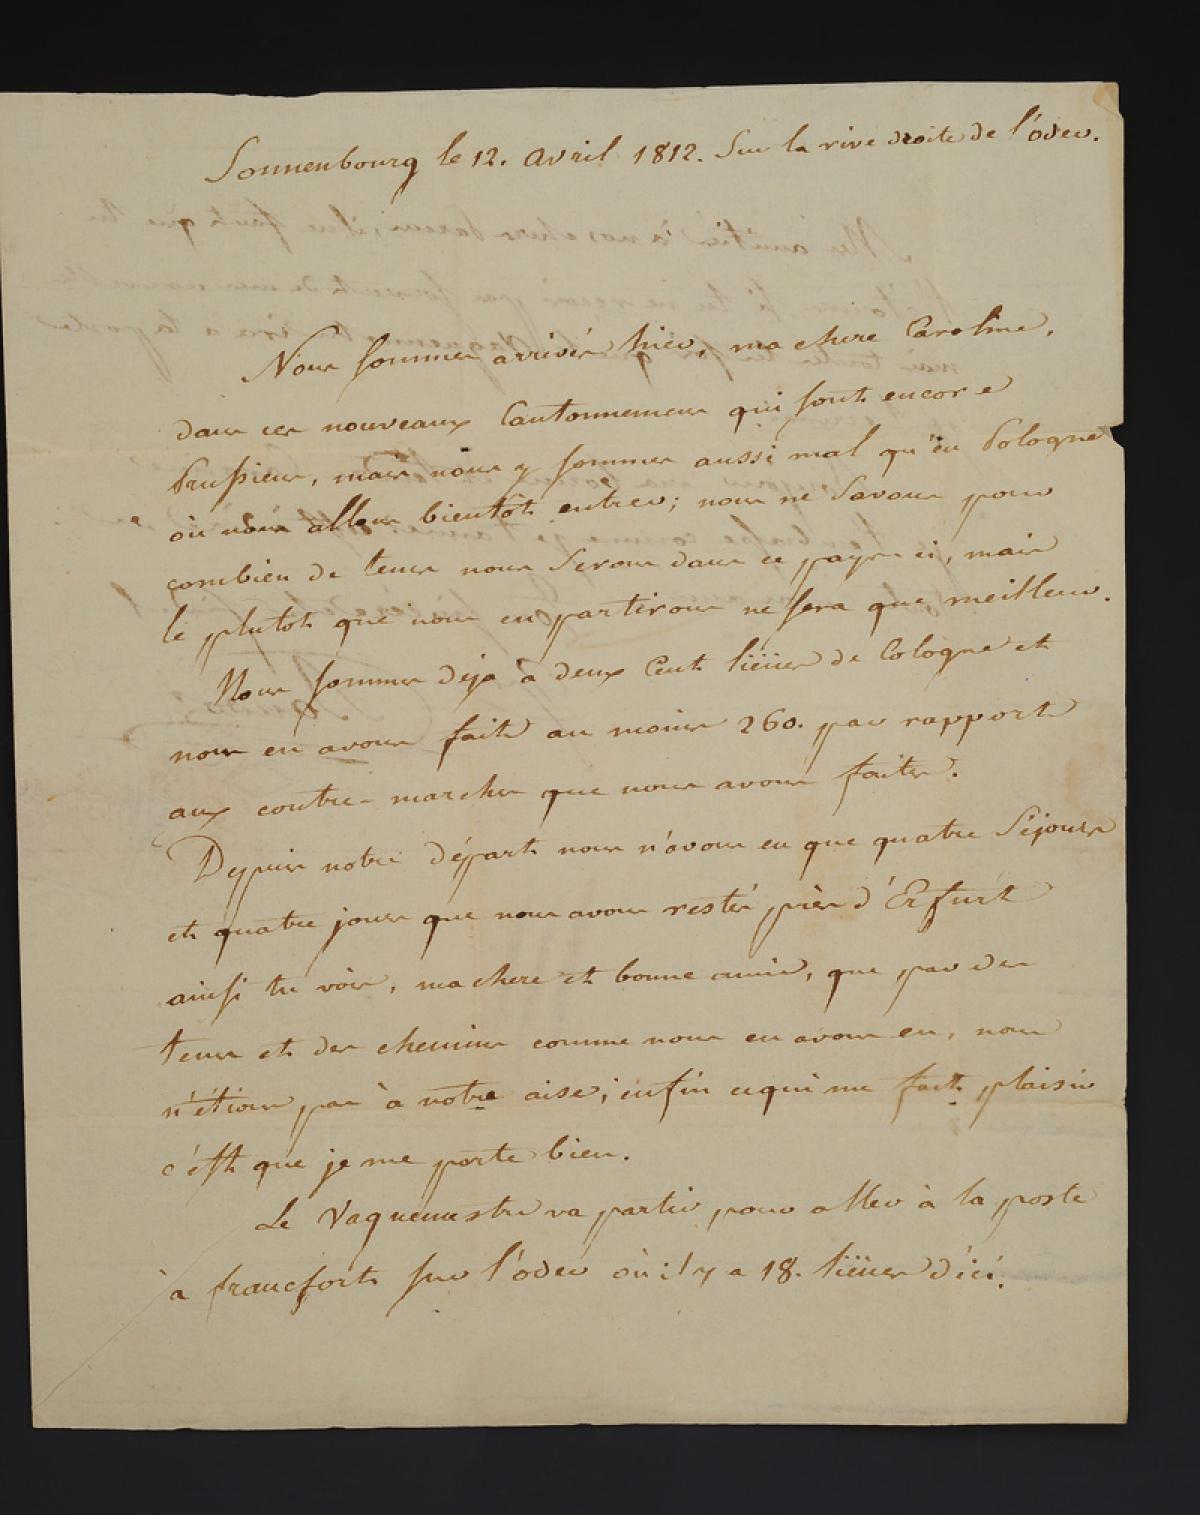 Sonnenbourg le 12. avril 1812. Sur la rive droite de l'oder.
Nous sommes arrivés hier, ma chere Caroline,
dans ces nouveaux Cantonnemens qui sont encore
Prussiens, mais nous y sommes aussi mal qu'en Pologne
où nous allons bientôt entrer; nous ne Savons pour
combien de tems nous Serons dans ce pays ci, mais
le plutot que nous en partirons ne sera que meilleur.
Nous sommes deja à deux Cent liëües de Cologne et
nous en avons fait au moins 260. par rapport
aux contre-marches que nous avons faites.
Depuis notre départ nous n'avons eu que quatre Séjours
et quatre jours que nous avons restés près d'Erfurt
ainsi tu vois, ma chere et bonne amie, que par des
tems et des chemins comme nous en avons eu, nous
n'étions pas à notre aise; enfin ce qui me fait plaisir
c'est que je me porte bien.
Le Vaguemestre va partir pour aller à la poste
à francfort sur l'oder où il y a 18. liëües d'ici.